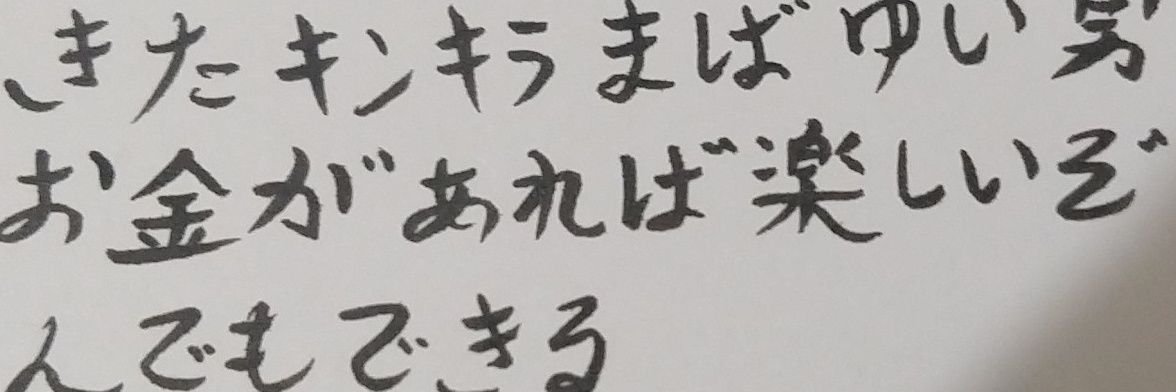 きたキンキラまばゆい男
お金があれば楽しいぞ
んでもできる